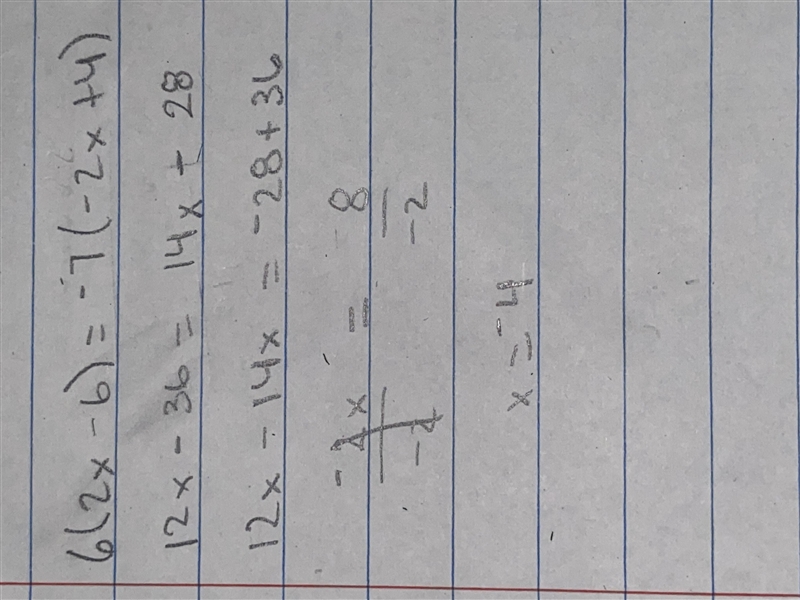 6(2x - 6) = -7(-2x + 4)
12x - 36 = 14x - 28
12x - 14x = -28 + 36
-2x/-2 = 8/-2
x = -4